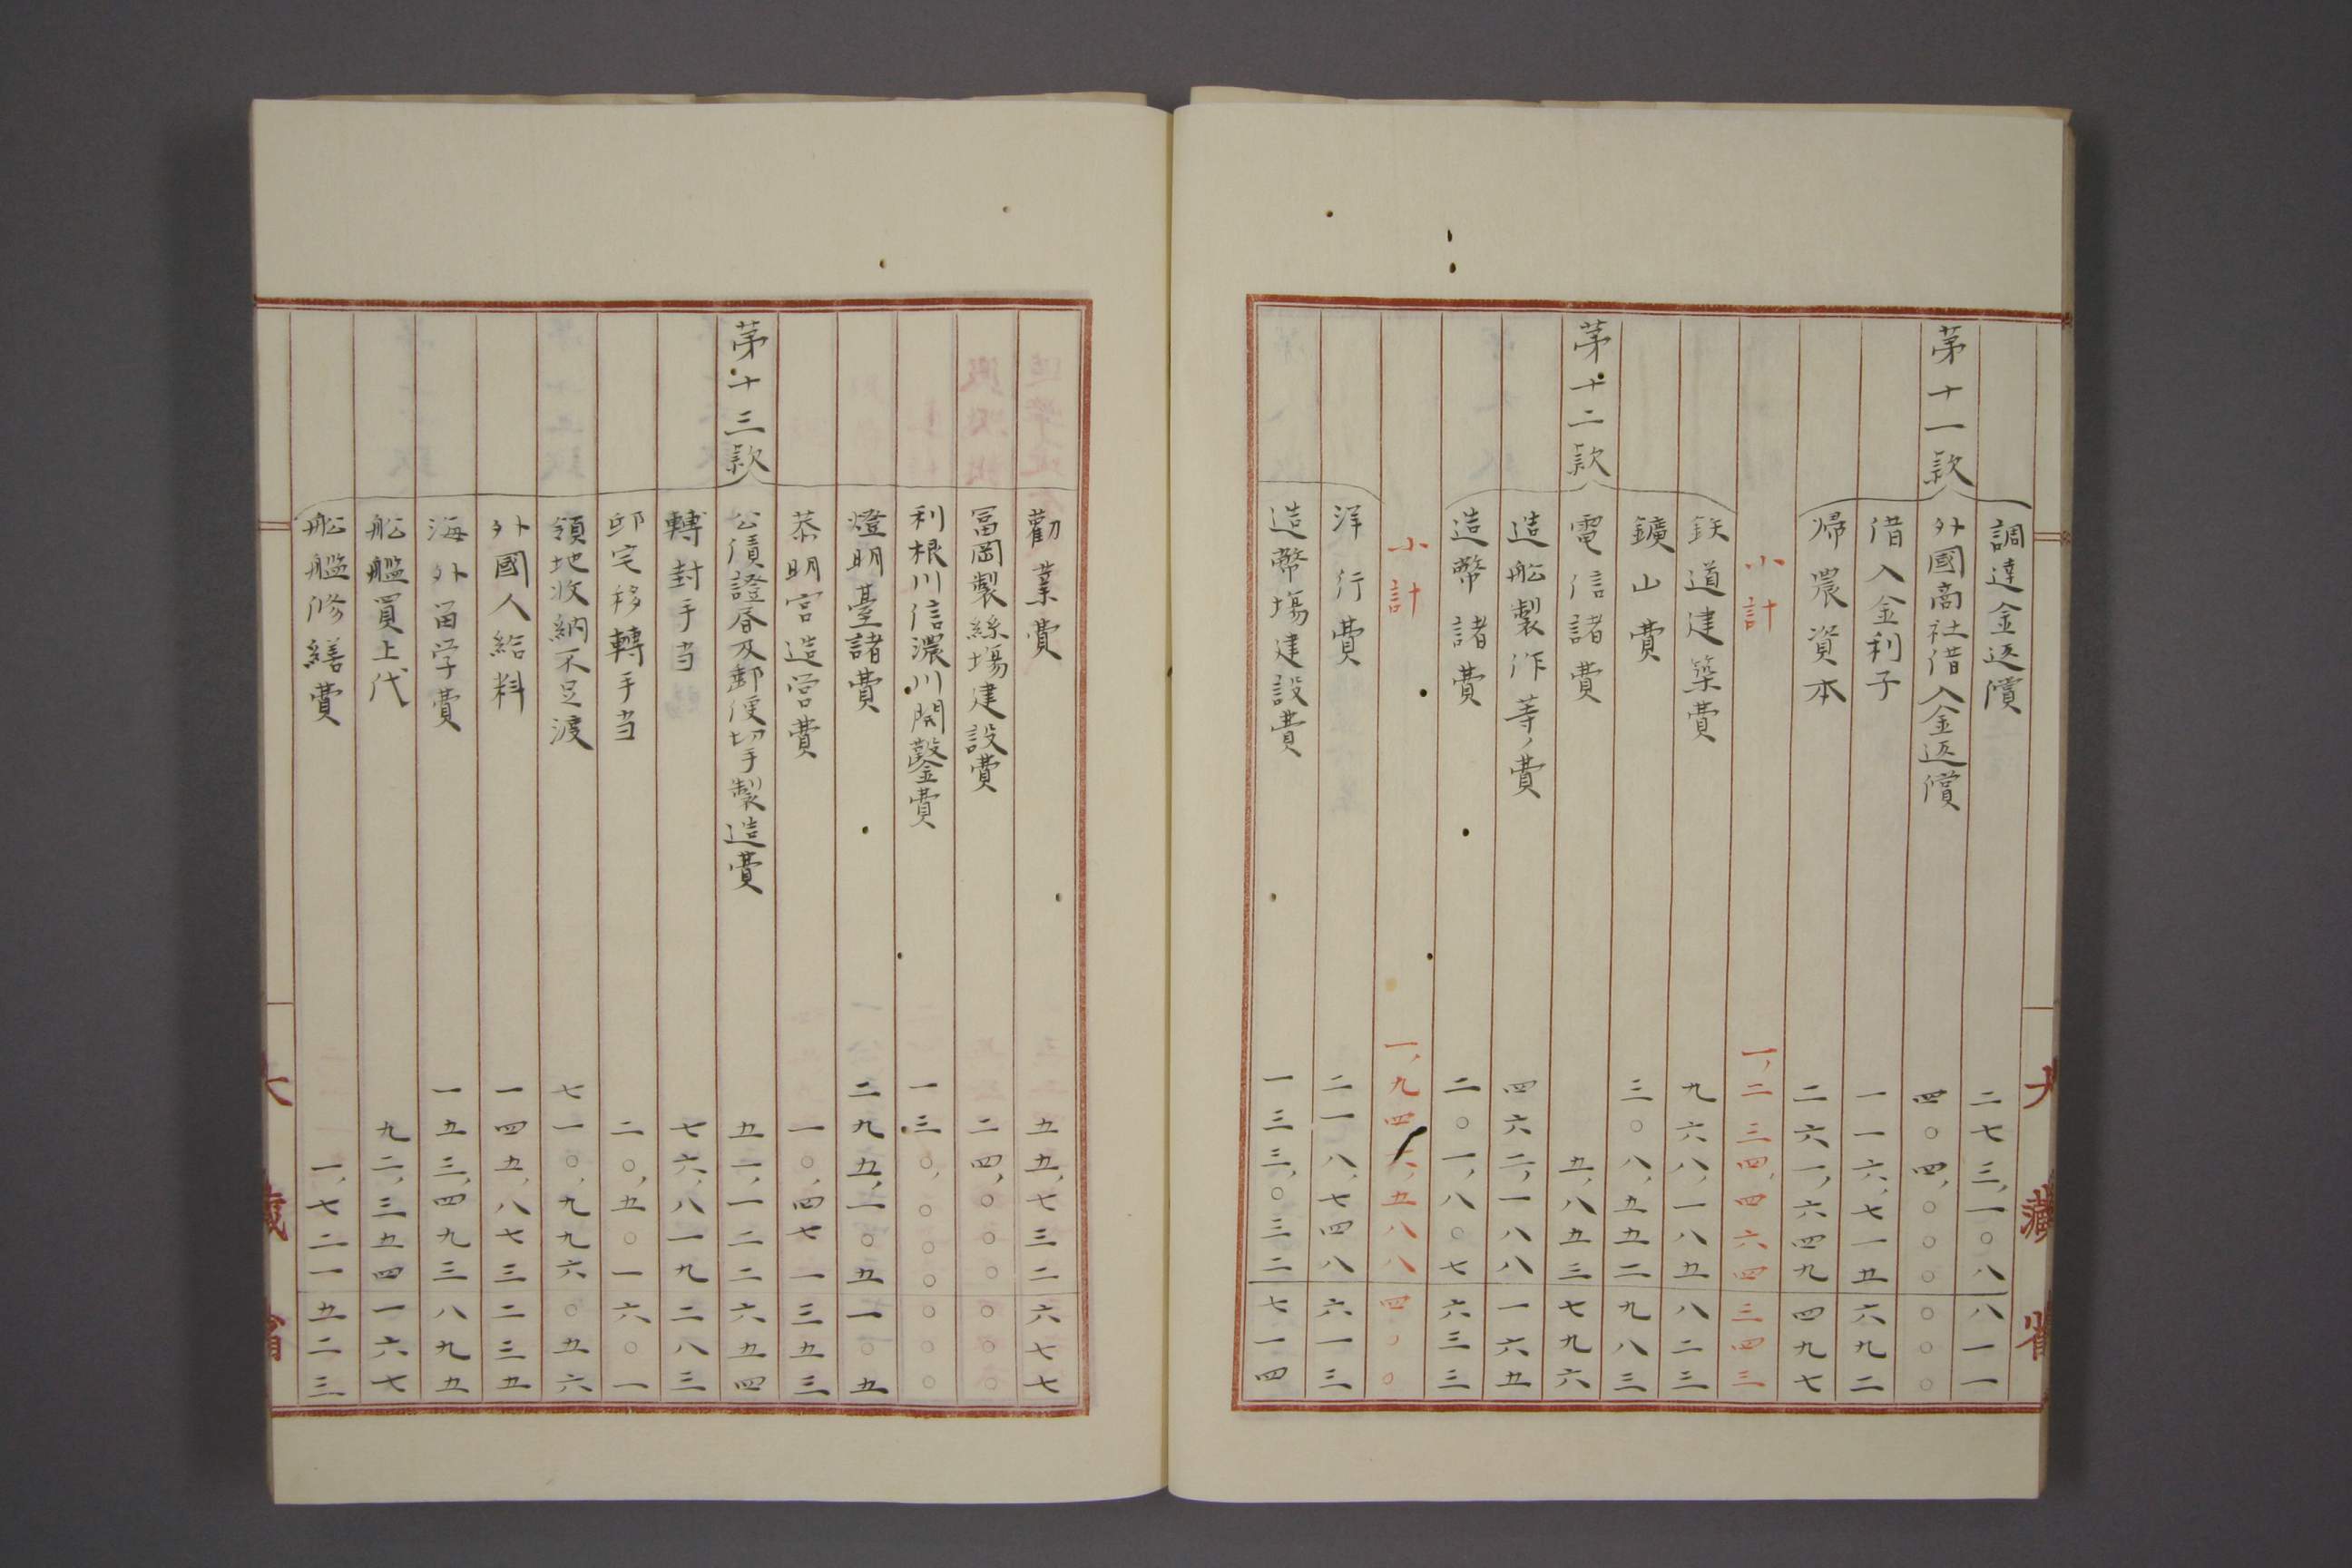 大藏省
調達金返償 二七三,一〇八八一一
第十一款 外國商社借入金返償 四〇四,〇〇〇〇〇〇
借入金利子 一一六,七一五六九二
帰農資本 二六一,六四九四九七
小計 一,二三四,四六四三四三
鉄道建築費 九六八,一八五八二三
鑛山費 三〇八,五五二九八三
第十二款 電信諸費 五,八五三七九六
造船製作等ノ費 四六二,一八八一六五
造幣諸費 二〇一,八〇七六三三
小計 一,九四六,五八八四〇〇
洋行費 二一八,七四八六一三
造幣場建設費 一三三,〇三二七一四
勸業費 五五,七三二六七七
冨岡製絲場建設費 二四,〇〇〇〇〇〇
利根川信濃川開鑿費 一三〇,〇〇〇〇〇〇
燈明臺諸費 二九五,一〇五一〇五
恭明宮造営費 一〇,四七一三五三
第十三款 公債證書及郵便切手製造費 五一,一二二六五四
轉封手当 七六,八一九二八三
邸宅移轉手当 二〇,五〇一六〇一
領地收納不足渡 七一〇,九九六〇五六
外國人給料 一四五,八七三二三五
海外留学費 一五三,四九三八九五
船艦買上代 九二,三五四一六七
船艦修繕費 一,七二一五二三
大藏省